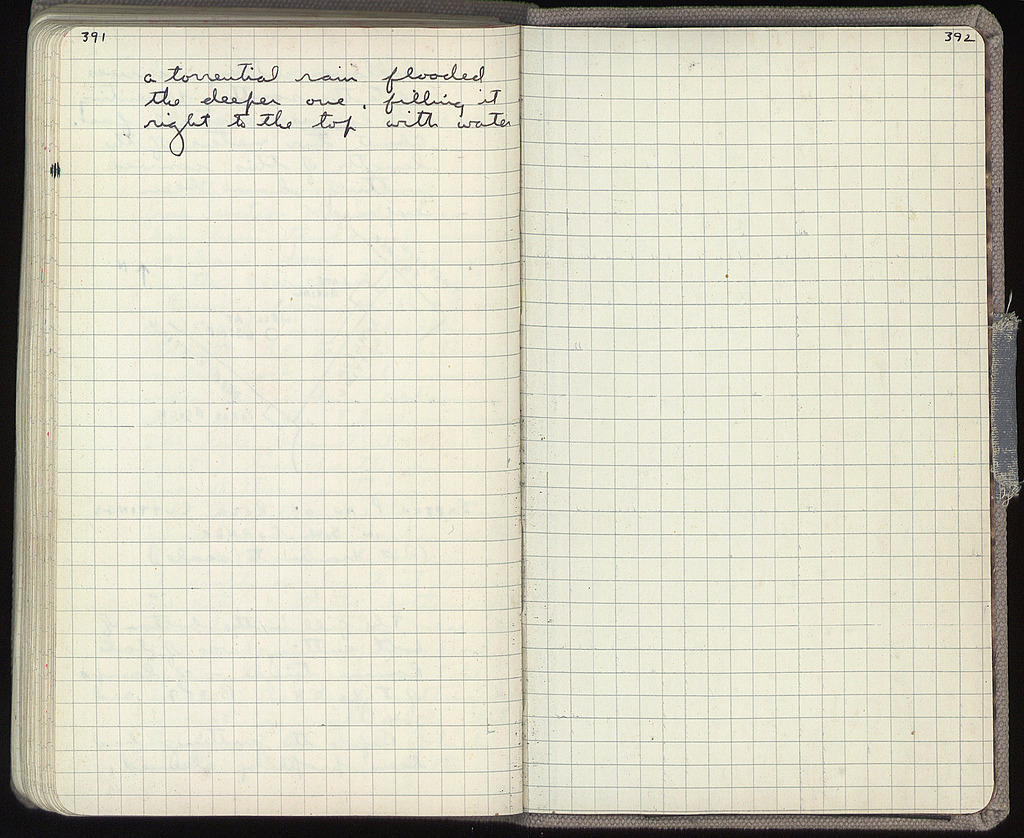 391
392
a torrential rain flooded
the deeper one, filling it
right to the top with water